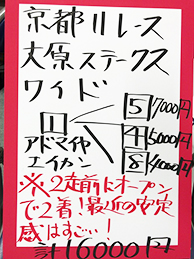 京都11レース
大原ステークス
ワイド
5 7000円
1 4 5000円
アドマイヤエイカン 8 4000円
※2走前にオープン
で2着!最近の安定
感はすごい!
計16000円